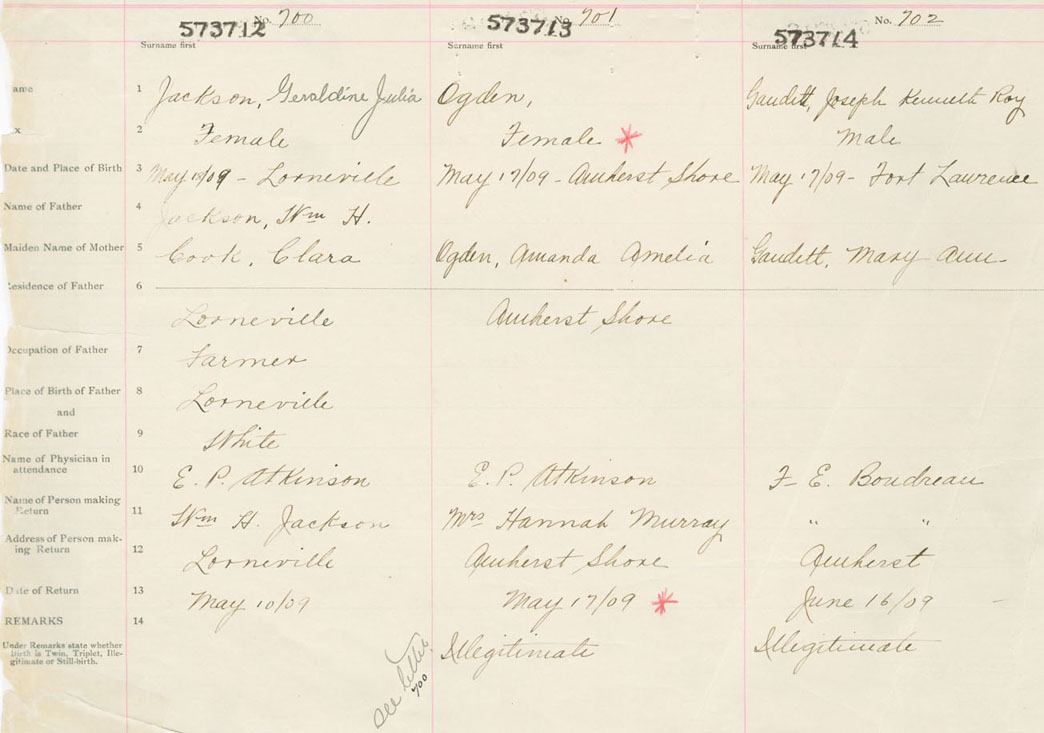 No. 700 No. 701 No. 702
573712 573713 573714
Surname first Surname first Surname first
ame 1 Jackson, Geraldine Julia Ogden, Gaudett, Joseph Kenneth Roy
x 2 Female Female * Male
Date and Place of Birth 3 May /09 - Lorneville May 17/09 - Amherst Shore May 17/09 - Fort Lawrence
Name of Father 4 Jackson, Wm H.
Maiden Name of Mother 5 Cook, Clara Ogden, Amanda Amelia Gaudett, Mary Ann -
Residence of Father 6
Lorneville Amherst Shore
Occupation of Father 7 Farmer
Place of Birth of Father 8 Lorneville
and
Race of Father 9 White
Name of Physician in
attendance 10 E. P. Atkinson E. P. Atkinson F E. Boudreau
Name of Person making
Return 11 Wm H. Jackson Mrs Hannah Murray " "
Address of Person mak-
ing Return 12 Lorneville Amherst Shore Amherst
Date of Return 13 May 10/09 May 17/09 * June 16/09 -
REMARKS 14
Under Remarks state whether
birth is Twin, Triplet, Ille-
gitimate or Still-birth.
Illegitimate Illegitimate
see letter
700